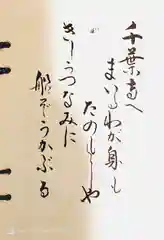 千葉寺へ
まいるわが身も
たのもしや
きしうつなみに
船ぞうかぶる